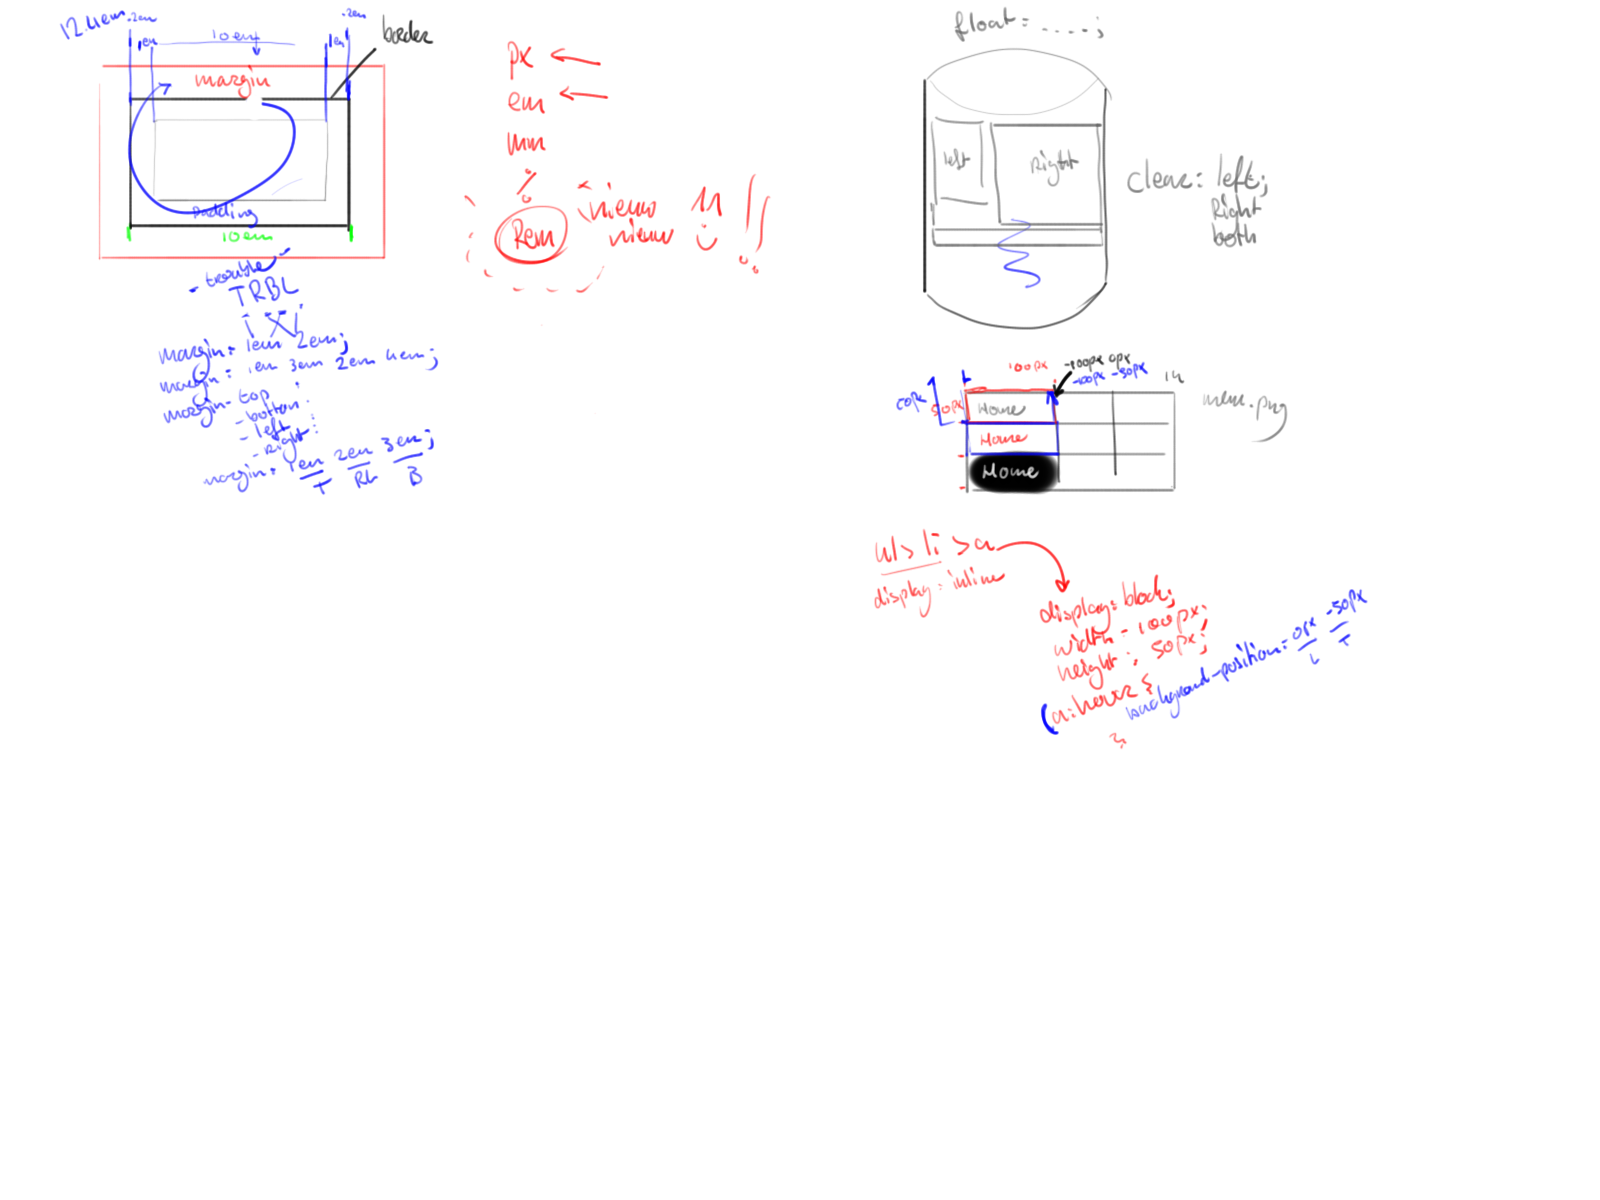 12.4em
.2em
.2em
1em
10em
1em
border
margin
padding
10em
- trouble -
TRBL
margin: 1em 2em;
margin: 1em 3em 2em 4em;
margin-top :
- bottom :
- left :
- right :
margin: 1em 2em 3em;
T RL B
px
em
mm
%
Rem
nieuw 11 !!
nieuw
float: .....;
left
Right
clear: left;
Right
both
100px
-100px 0px
-100px -50px
50px
Home
Home
Home
menu.png
ul > li > a
display: inline
display: block;
width: 100px;
height: 50px;
(a:hover {
background-position: 0px -50px
L T
}